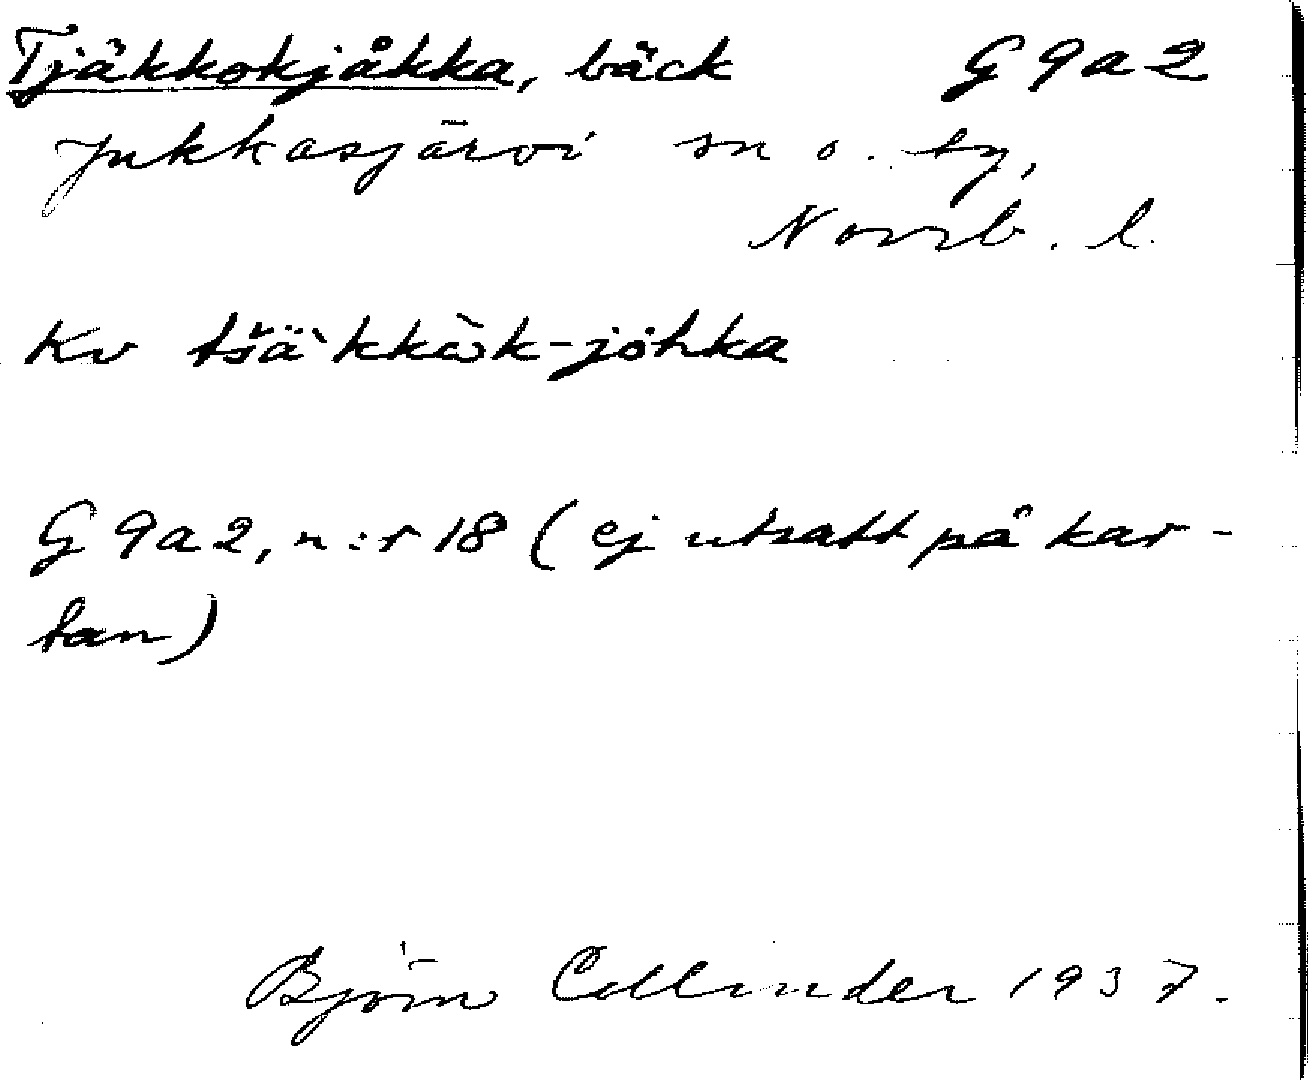 Tjäkkokjåkka, bäck G9a2
Jukkasjärvi sn o. tg,
Norrb. l.
Kv tšä̀kkàk-jòhka
G9a2, n:r 18 (ej utsatt på kar-
tan)
Björn Collinder 1937.